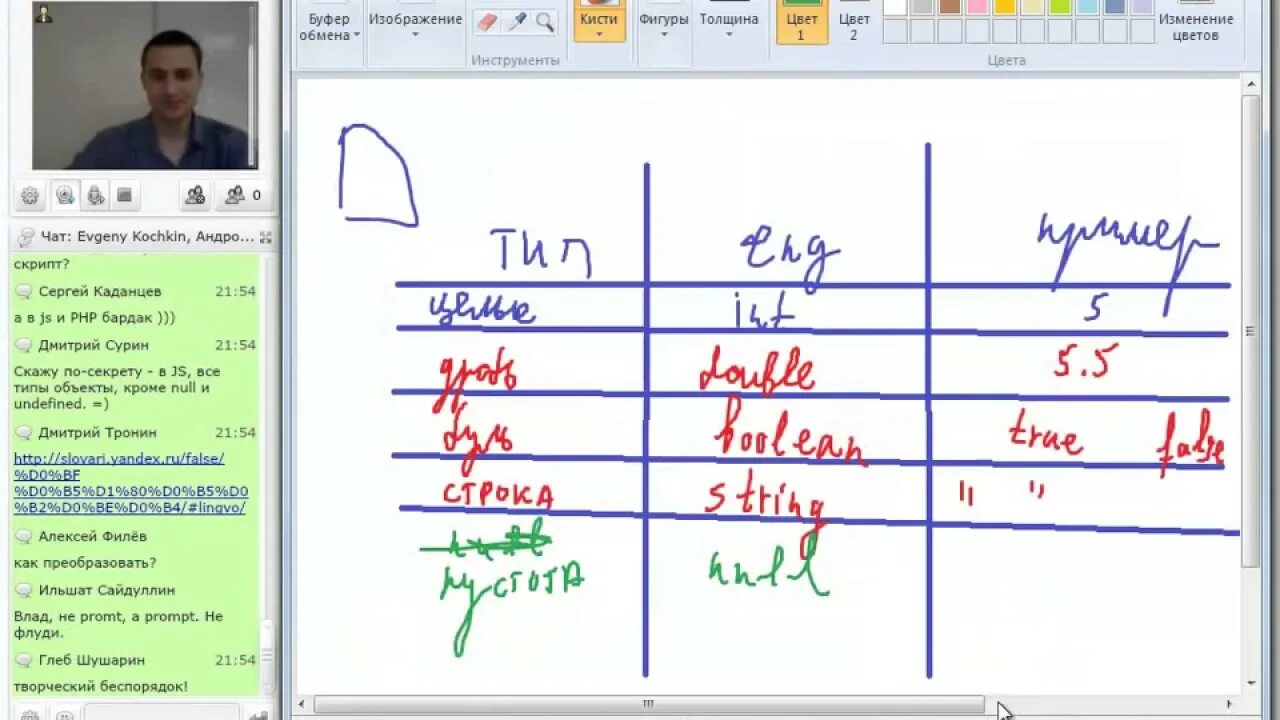 Буфер обмена
Изображение
Инструменты
Кисти
Фигуры
Толщина
Цвет 1
Цвет 2
Изменение цветов
Цвета
0
Чат: Evgeny Kochkin, Андро...
скрипт?
Сергей Каданцев 21:54
а в js и PHP бардак )))
Дмитрий Сурин 21:54
Скажу по-секрету - в JS, все
типы объекты, кроме null и
undefined. =)
Дмитрий Тронин 21:54
http://slovari.yandex.ru/false/
%D0%BF
%D0%B5%D1%80%D0%B5%D0
%B2%D0%BE%D0%B4/#lingvo/
Алексей Филёв
как преобразовать?
Ильшат Сайдуллин
Влад, не promt, а prompt. Не
флуди.
Глеб Шушарин 21:54
творческий беспорядок!
тип eng пример
целые int 5
дробь double 5.5
буль boolean true false
СТРОКА string " "
пустота null